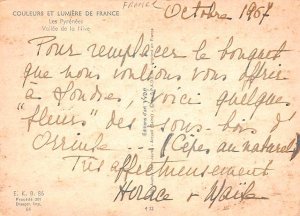 COULEURS ET LUMIÈRE DE FRANCE
Les Pyrénées
Vallée de la Nive
FRANCE
Octobre 1967
Pour remplacer le bouquet
que nous voulions vous offrir
à Londres, voici quelques
"fleurs" des sous-bois d'
... (Cèpes au naturel)
Très affectueusement
Horace &
E. K. B. 85